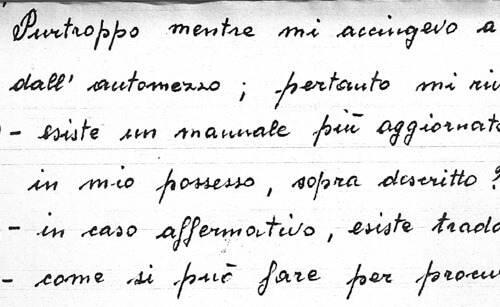 Purtroppo mentre mi accingevo a
dall' automezzo ; pertanto mi riv
- esiste un manuale più aggiornato
in mio possesso, sopra descritto ?
- in caso affermativo, esiste trado
- come si può fare per procu